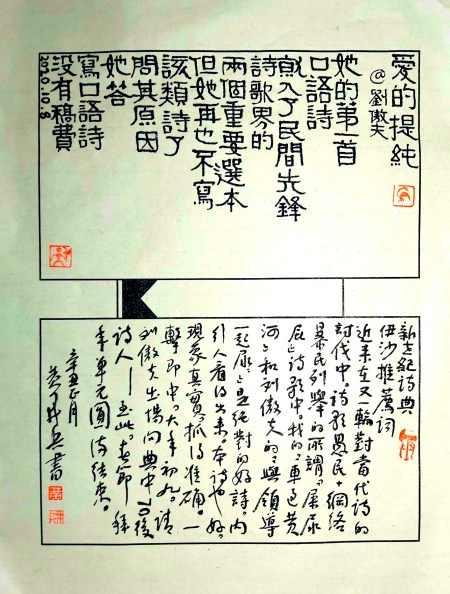 愛的提純
@劉傲夫
她的第一首
口語詩
就入了民間先鋒
詩歌界的
兩個重要選本
但她再也不寫
該類詩了
問其原因
她答
寫口語詩
沒有稿費
2020.10.8
新世紀詩典
伊沙推薦詞
近來在又一輪對當代詩的
討伐中，詩歌愚民+網絡
暴民列舉的所謂「屎尿
屁」詩歌中，我的《車過黃
河》和劉傲夫的《與領導
一起尿》是絕對的好詩。內
行人看得出來。本詩也好。
現象真實，抓得準確。一
擊即中。大年初九。請
劉傲夫出場向典中70後
詩人——至此。春節
季單元圓滿結束。
辛丑正月
黃開兵書